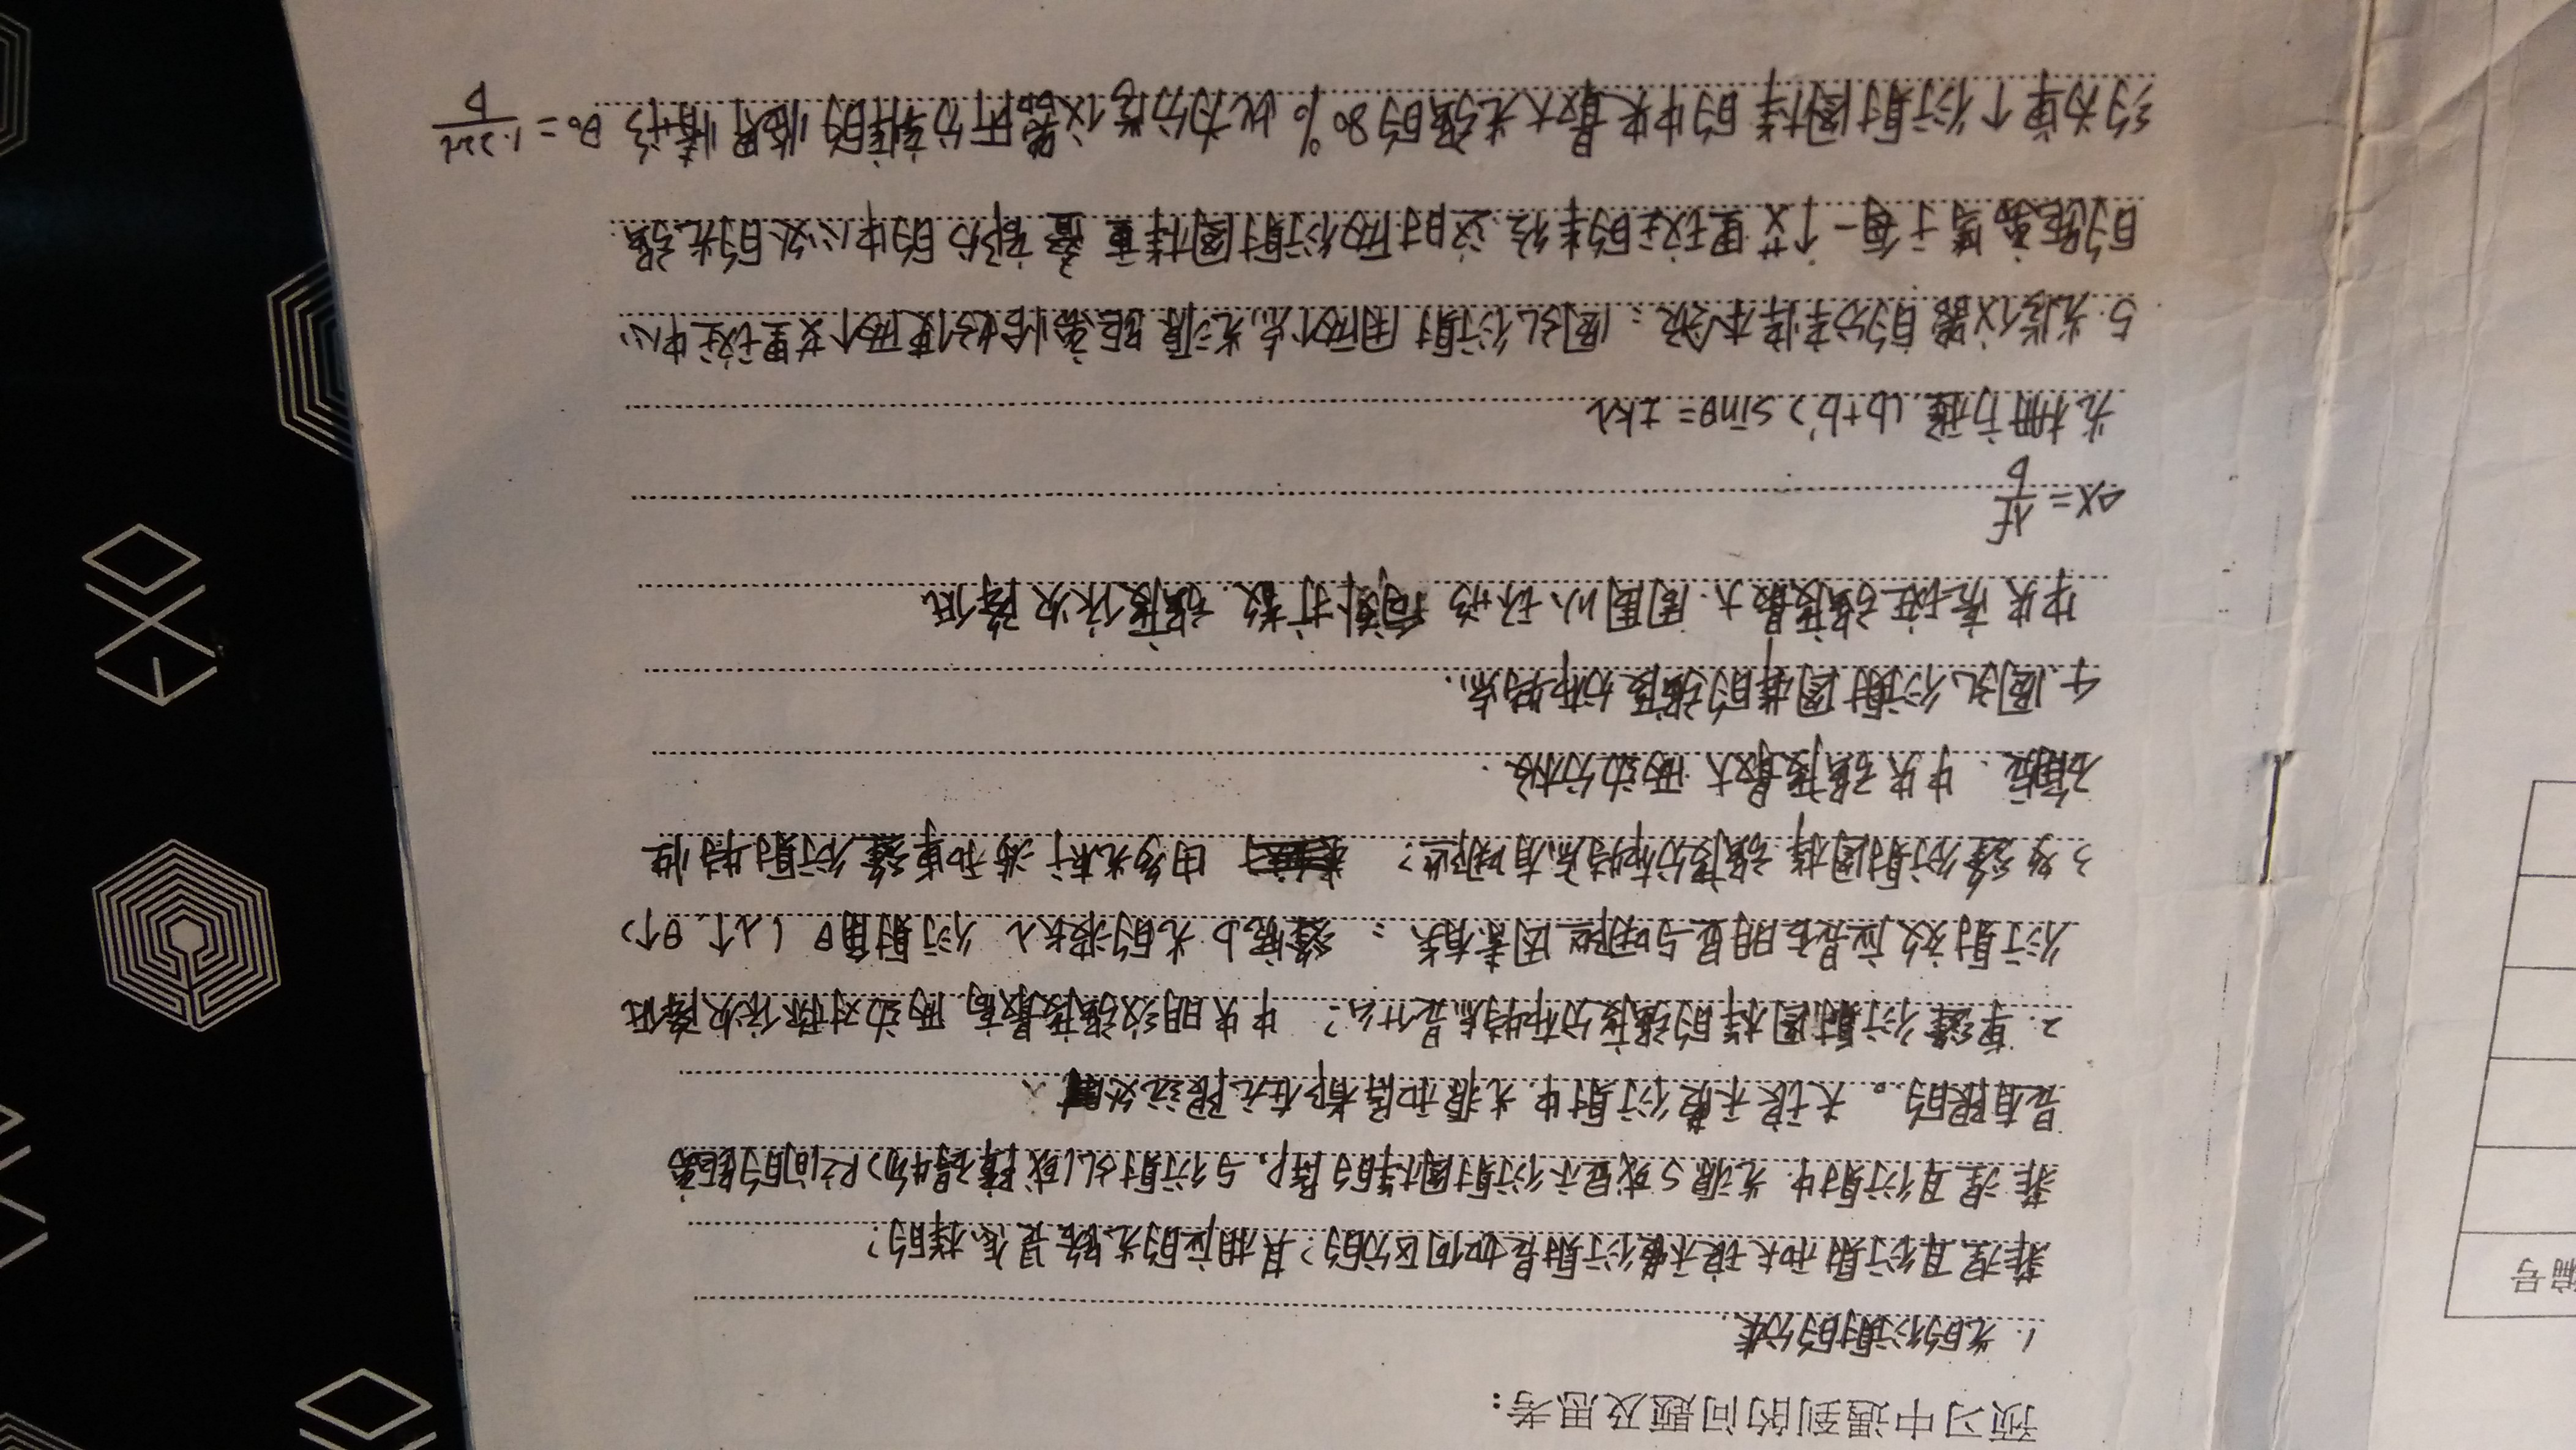 预习中遇到的问题及思考:
1. 光的衍射的分类.
菲涅耳衍射和夫琅禾费衍射是如何区分的? 其相应的光路是怎样的?
菲涅耳衍射中, 光源S或显示衍射图样的屏P, 与衍射孔(或障碍物)R之间的距离
是有限的。夫琅禾费衍射中, 光源和屏都在无限远处
2. 单缝衍射图样的强度分布特点是什么? 中央明纹强度最高, 两边对称依次降低
衍射效应是否明显与哪些因素有关: 缝宽b 光的波长λ 衍射角θ (λ↑ θ↑)
3 多缝衍射图样强度分布特点有哪些? 由多光束干涉和单缝衍射特性
中央强度最大 两边分极.
4. 圆孔衍射图样的强度分布特点.
中央亮斑强度最大. 周围以环形向外扩散. 强度依次降低
Δx = λf/b
光栅方程 (b+b') sinθ = ±kλ
5. 光学仪器的分辨本领: 圆孔衍射 用两个点光源距离恰好使两个艾里斑中心
的距离等于每一个艾里斑的半径. 这时两衍射图样重叠部分的中心处的光强
约为单个衍射图样的中央最大光强的80% 此为分学仪器所分辨的临界情形 θ₀ = 1.22λ/D
编号